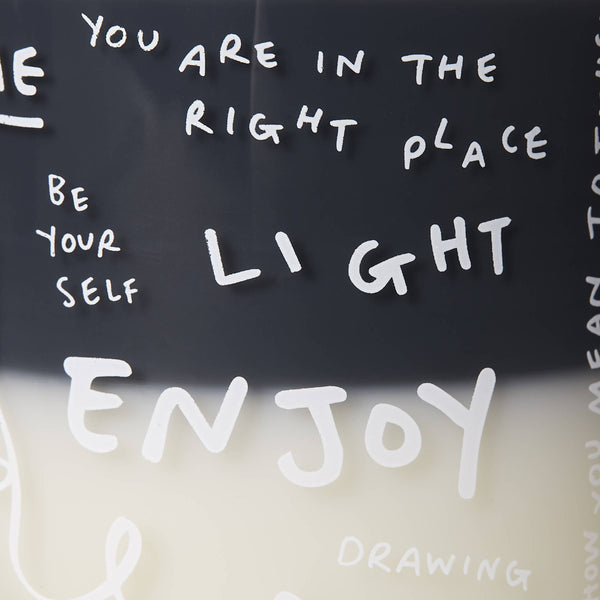 YOU ARE IN THE
RIGHT PLACE
BE
YOUR
SELF
LIGHT
ENJOY
DRAWING
HOW YOU MEAN TO